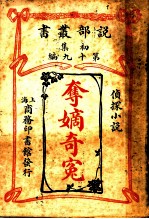 說部叢書
初集
第十九編
偵探小說
奪嫡奇冤
上海
商務印書館發行